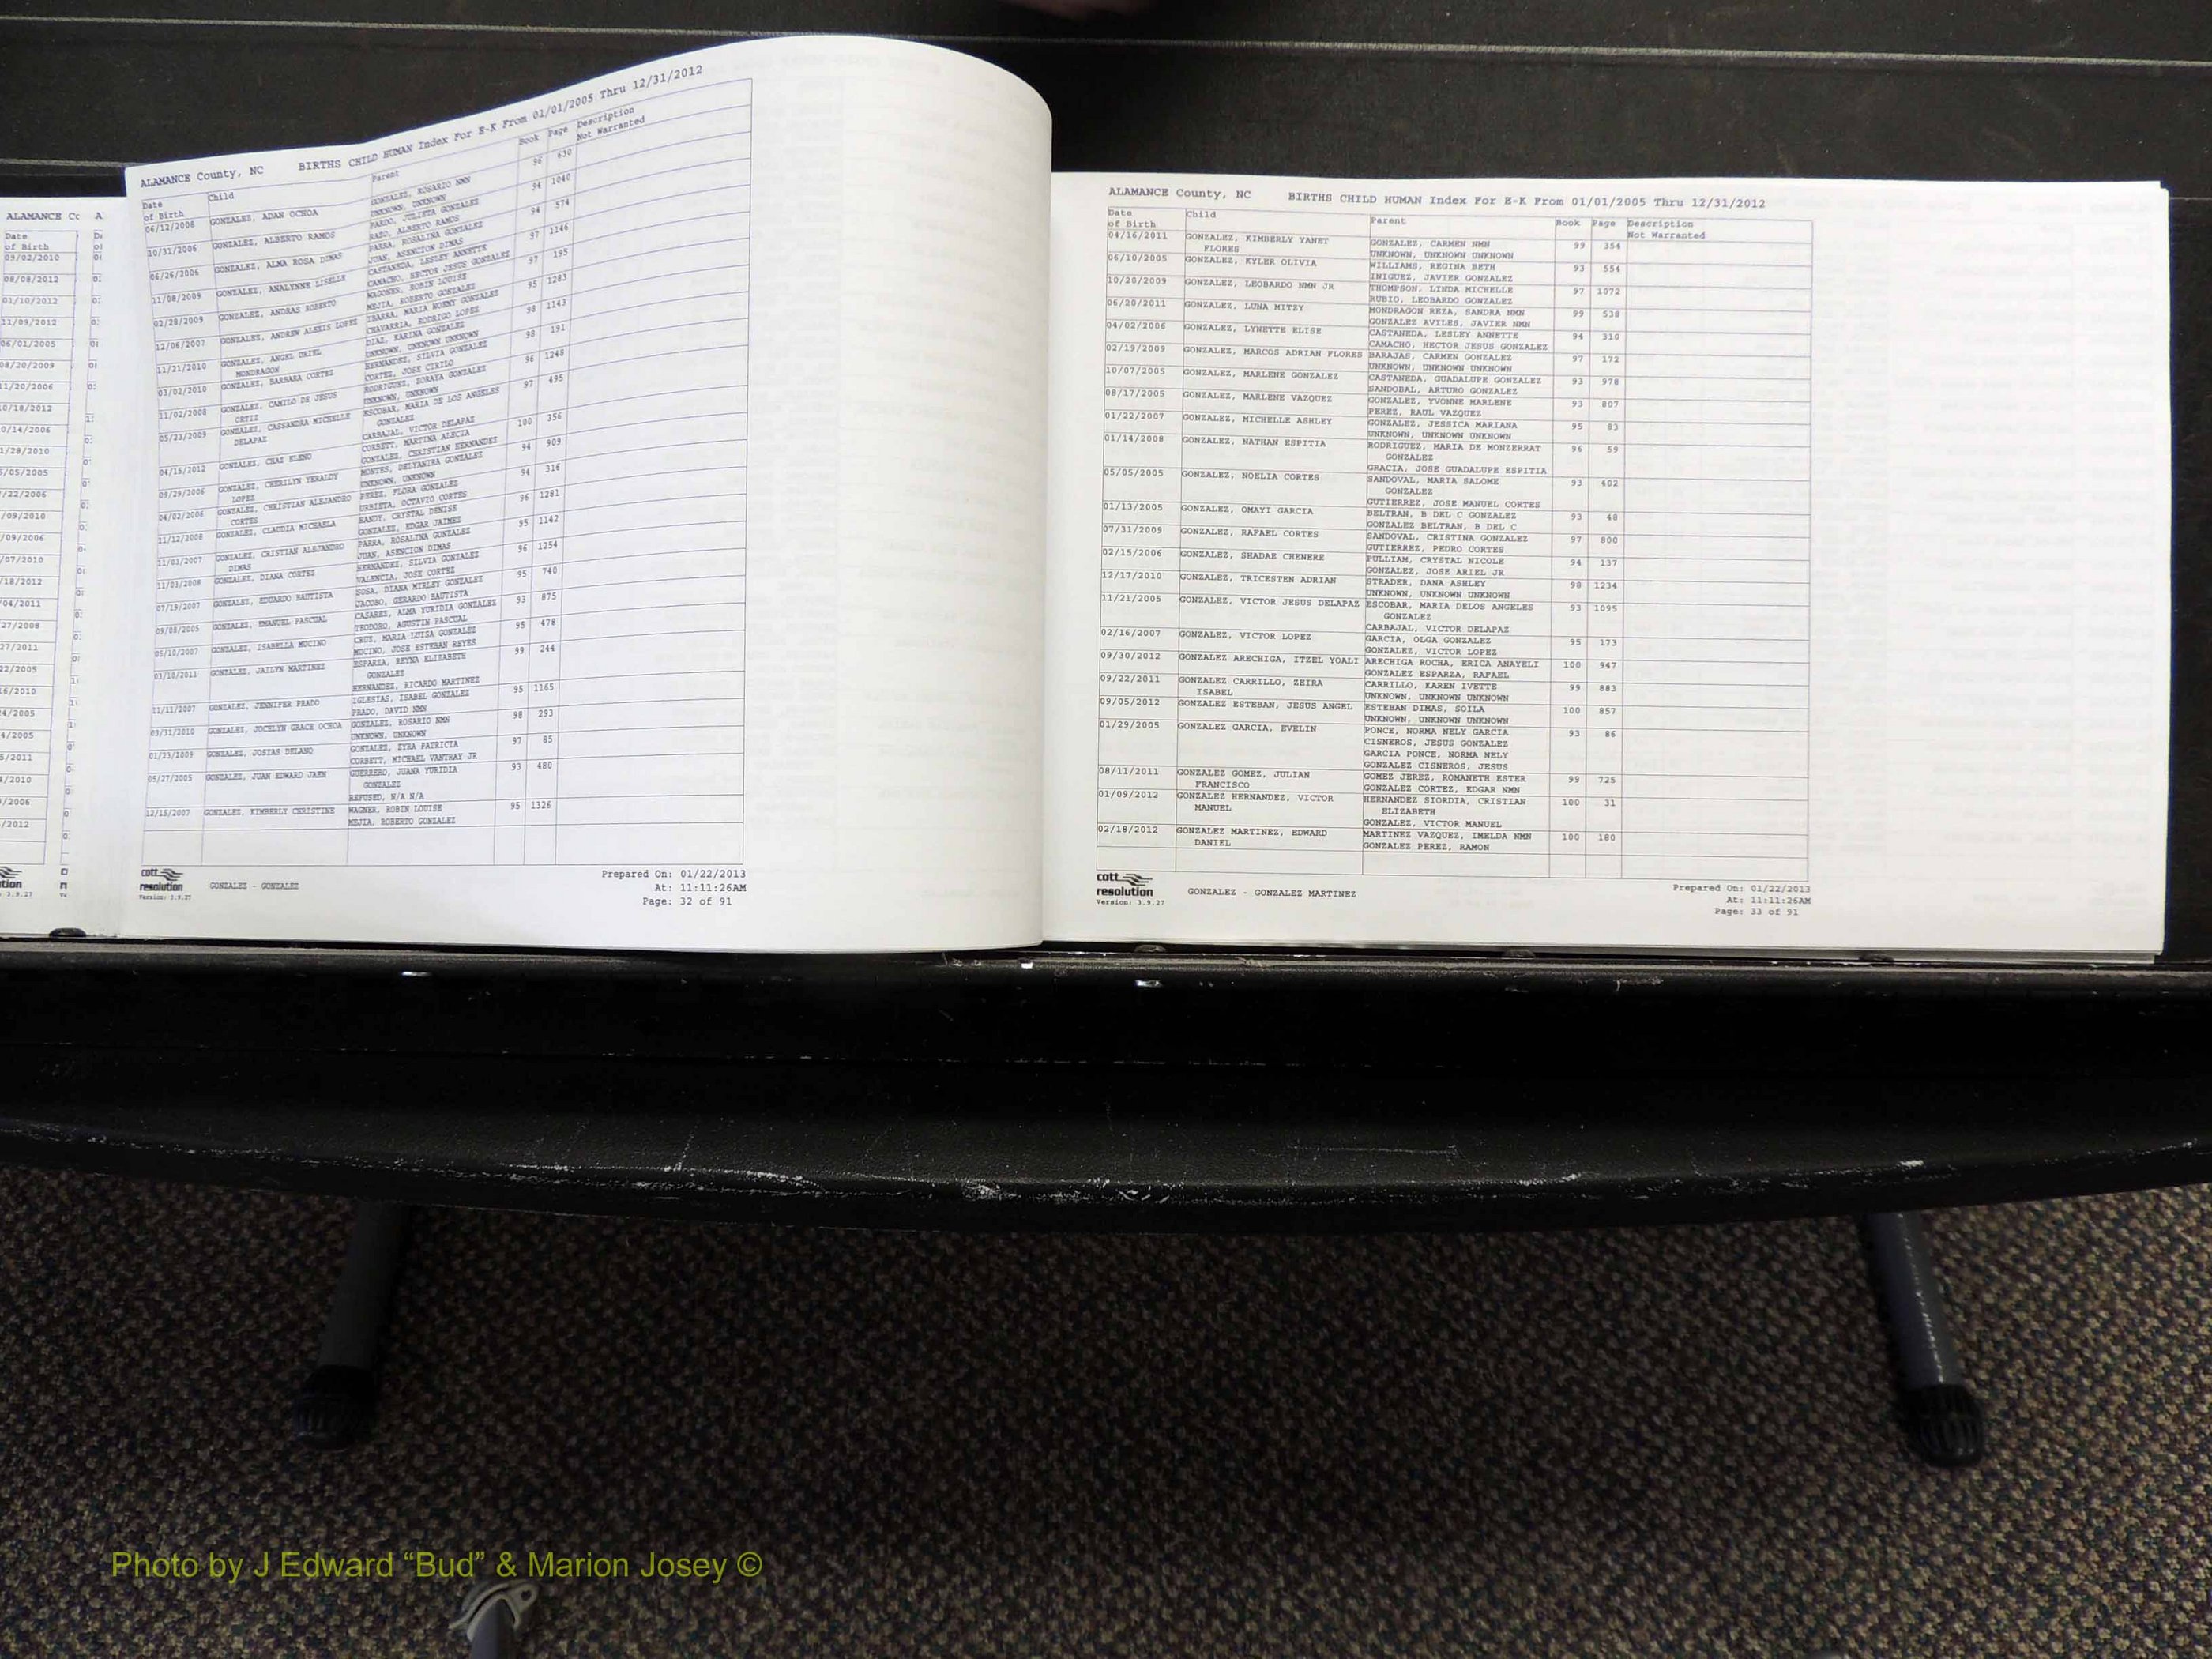 ALAMANCE Cc
Date
of Birth
09/02/2010
08/08/2012
01/10/2012
11/09/2012
06/01/2005
08/20/2009
11/20/2006
ALAMANCE County, NC BIRTHS CHILD HUMAN Index For E-K From 01/01/2005 Thru 12/31/2012
Date of Birth Child Parent Book Page Description Not Warranted
06/12/2008 GONZALEZ, ADAN OCHOA GONZALEZ, ROSARIO NMN 96 630
UNKNOWN, UNKNOWN
10/31/2006 GONZALEZ, ALBERTO RAMOS PARDO, JULIETA GONZALEZ 94 1040
RAZO, ALBERTO RAMOS
06/26/2006 GONZALEZ, ALMA ROSA DIMAS PARRA, ROSALINA GONZALEZ 94 574
JUAN, ASENCION DIMAS
11/08/2009 GONZALEZ, ANALYNNE LISELLE CASTANEDA, LESLEY ANNETTE 97 1146
CAMACHO, HECTOR JESUS GONZALEZ
02/28/2009 GONZALEZ, ANDRAS ROBERTO WAGONER, ROBIN LOUISE 97 195
MEJIA, ROBERTO GONZALEZ
12/06/2007 GONZALEZ, ANDREW ALEXIS LOPEZ IBARRA, MARIA NOEMY GONZALEZ 95 1283
CHAVARRIA, RODRIGO LOPEZ
11/21/2010 GONZALEZ, ANGEL URIEL DIAZ, KARINA GONZALEZ 98 1143
MONDRAGON UNKNOWN, UNKNOWN UNKNOWN
03/02/2010 GONZALEZ, BARBARA CORTEZ HERNANDEZ, SILVIA GONZALEZ 98 191
CORTEZ, JOSE CIRILO
11/02/2008 GONZALEZ, CAMILO DE JESUS RODRIGUEZ, ZORAYA GONZALEZ 96 1248
ORTIZ UNKNOWN, UNKNOWN
05/23/2009 GONZALEZ, CASSANDRA MICHELLE ESCOBAR, MARIA DE LOS ANGELES 97 495
DELAPAZ GONZALEZ
CARBAJAL, VICTOR DELAPAZ
04/15/2012 GONZALEZ, CHAZ ELENO CORBETT, MARTINA ALECIA 100 356
GONZALEZ, CHRISTIAN HERNANDEZ
09/29/2006 GONZALEZ, CHERILYN YERALDY MONTES, DELYANIRA GONZALEZ 94 909
LOPEZ UNKNOWN, UNKNOWN
04/02/2006 GONZALEZ, CHRISTIAN ALEJANDRO PEREZ, FLORA GONZALEZ 94 316
CORTES URBIETA, OCTAVIO CORTES
11/12/2008 GONZALEZ, CLAUDIA MICHAELA HANDY, CRYSTAL DENISE 96 1281
GONZALEZ, EDGAR JAIMES
11/03/2007 GONZALEZ, CRISTIAN ALEJANDRO PARRA, ROSALINA GONZALEZ 95 1142
DIMAS JUAN, ASENCION DIMAS
11/03/2008 GONZALEZ, DIANA CORTEZ HERNANDEZ, SILVIA GONZALEZ 96 1254
VALENCIA, JOSE CORTEZ
07/19/2007 GONZALEZ, EDUARDO BAUTISTA SOSA, DIANA MIRLEY GONZALEZ 95 740
JACOBO, GERARDO BAUTISTA
09/08/2005 GONZALEZ, EMANUEL PASCUAL CASAREZ, ALMA YURIDIA GONZALEZ 93 875
TEODORO, AGUSTIN PASCUAL
05/10/2007 GONZALEZ, ISABELLA MUCINO CRUZ, MARIA LUISA GONZALEZ 95 478
MUCINO, JOSE ESTEBAN REYES
03/10/2011 GONZALEZ, JAILYN MARTINEZ ESPARZA, REYNA ELIZABETH 99 244
GONZALEZ
HERNANDEZ, RICARDO MARTINEZ
11/11/2007 GONZALEZ, JENNIFER PRADO IGLESIAS, ISABEL GONZALEZ 95 1165
PRADO, DAVID NMN
03/31/2010 GONZALEZ, JOCELYN GRACE OCHOA GONZALEZ, ROSARIO NMN 98 293
UNKNOWN, UNKNOWN
01/23/2009 GONZALEZ, JOSIAS DELANO GONZALEZ, EYRA PATRICIA 97 85
CORBETT, MICHAEL VANTRAY JR
05/27/2005 GONZALEZ, JUAN EDWARD JAEN GUERRERO, JUANA YURIDIA 93 480
GONZALEZ
REFUSED, N/A N/A
12/15/2007 GONZALEZ, KIMBERLY CHRISTINE WAGNER, ROBIN LOUISE 95 1326
MEJIA, ROBERTO GONZALEZ
cott
resolution
Version: 3.9.27
GONZALEZ - GONZALEZ
Prepared On: 01/22/2013
At: 11:11:26AM
Page: 32 of 91
ALAMANCE County, NC BIRTHS CHILD HUMAN Index For E-K From 01/01/2005 Thru 12/31/2012
Date of Birth Child Parent Book Page Description Not Warranted
04/16/2011 GONZALEZ, KIMBERLY YANET GONZALEZ, CARMEN NMN 99 354
FLORES UNKNOWN, UNKNOWN UNKNOWN
06/10/2005 GONZALEZ, KYLER OLIVIA WILLIAMS, REGINA BETH 93 554
INIGUEZ, JAVIER GONZALEZ
10/20/2009 GONZALEZ, LEOBARDO NMN JR THOMPSON, LINDA MICHELLE 97 1072
RUBIO, LEOBARDO GONZALEZ
06/20/2011 GONZALEZ, LUNA MITZY MONDRAGON REZA, SANDRA NMN 99 538
GONZALEZ AVILES, JAVIER NMN
04/02/2006 GONZALEZ, LYNETTE ELISE CASTANEDA, LESLEY ANNETTE 94 310
CAMACHO, HECTOR JESUS GONZALEZ
02/19/2009 GONZALEZ, MARCOS ADRIAN FLORES BARAJAS, CARMEN GONZALEZ 97 172
UNKNOWN, UNKNOWN UNKNOWN
10/07/2005 GONZALEZ, MARLENE GONZALEZ CASTANEDA, GUADALUPE GONZALEZ 93 978
SANDOBAL, ARTURO GONZALEZ
08/17/2005 GONZALEZ, MARLENE VAZQUEZ GONZALEZ, YVONNE MARLENE 93 807
PEREZ, RAUL VAZQUEZ
01/22/2007 GONZALEZ, MICHELLE ASHLEY GONZALEZ, JESSICA MARIANA 95 83
UNKNOWN, UNKNOWN UNKNOWN
01/14/2008 GONZALEZ, NATHAN ESPITIA RODRIGUEZ, MARIA DE MONZERRAT 96 59
GONZALEZ
GRACIA, JOSE GUADALUPE ESPITIA
05/05/2005 GONZALEZ, NOELIA CORTES SANDOVAL, MARIA SALOME 93 402
GONZALEZ
GUTIERREZ, JOSE MANUEL CORTES
01/13/2005 GONZALEZ, OMAYI GARCIA BELTRAN, B DEL C GONZALEZ 93 48
GONZALEZ BELTRAN, B DEL C
07/31/2009 GONZALEZ, RAFAEL CORTES SANDOVAL, CRISTINA GONZALEZ 97 800
GUTIERREZ, PEDRO CORTES
02/15/2006 GONZALEZ, SHADAE CHENERE PULLIAM, CRYSTAL NICOLE 94 137
GONZALEZ, JOSE ARIEL JR
12/17/2010 GONZALEZ, TRICESTEN ADRIAN STRADER, DANA ASHLEY 98 1234
UNKNOWN, UNKNOWN UNKNOWN
11/21/2005 GONZALEZ, VICTOR JESUS DELAPAZ ESCOBAR, MARIA DELOS ANGELES 93 1095
GONZALEZ
CARBAJAL, VICTOR DELAPAZ
02/16/2007 GONZALEZ, VICTOR LOPEZ GARCIA, OLGA GONZALEZ 95 173
GONZALEZ, VICTOR LOPEZ
09/30/2012 GONZALEZ ARECHIGA, ITZEL YOALI ARECHIGA ROCHA, ERICA ANAYELI 100 947
GONZALEZ ESPARZA, RAFAEL
09/22/2011 GONZALEZ CARRILLO, ZEIRA CARRILLO, KAREN IVETTE 99 883
ISABEL UNKNOWN, UNKNOWN UNKNOWN
09/05/2012 GONZALEZ ESTEBAN, JESUS ANGEL ESTEBAN DIMAS, SOILA 100 857
UNKNOWN, UNKNOWN UNKNOWN
01/29/2005 GONZALEZ GARCIA, EVELIN PONCE, NORMA NELY GARCIA 93 86
CISNEROS, JESUS GONZALEZ
GARCIA PONCE, NORMA NELY
GONZALEZ CISNEROS, JESUS
08/11/2011 GONZALEZ GOMEZ, JULIAN GOMEZ JEREZ, ROMANETH ESTER 99 725
FRANCISCO GONZALEZ CORTEZ, EDGAR NMN
01/09/2012 GONZALEZ HERNANDEZ, VICTOR HERNANDEZ SIORDIA, CRISTIAN 100 31
MANUEL ELIZABETH
GONZALEZ, VICTOR MANUEL
02/18/2012 GONZALEZ MARTINEZ, EDWARD MARTINEZ VAZQUEZ, IMELDA NMN 100 180
DANIEL GONZALEZ PEREZ, RAMON
cott
resolution
Version: 3.9.27
GONZALEZ - GONZALEZ MARTINEZ
Prepared On: 01/22/2013
At: 11:11:26AM
Page: 33 of 91
Photo by J Edward “Bud” & Marion Josey ©